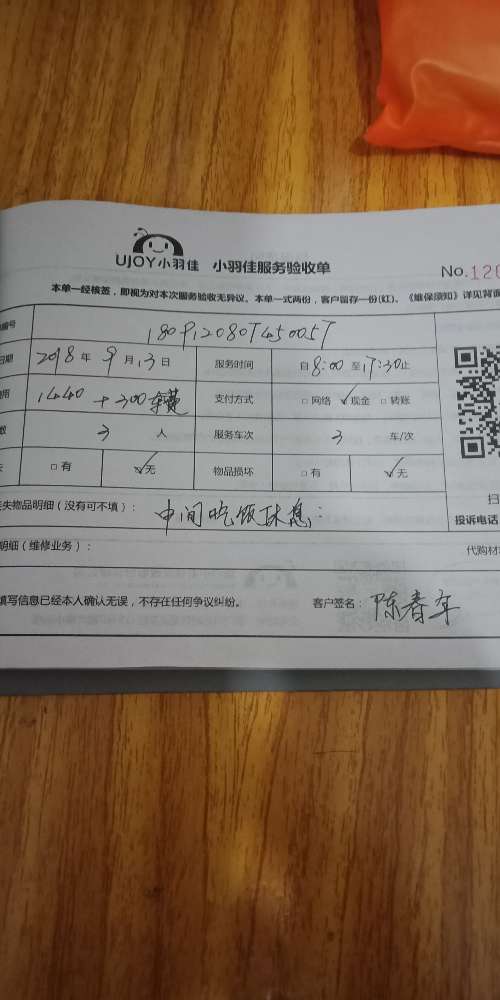 UJOY小羽佳 小羽佳服务验收单 No.120
本单一经核签，即视为对本次服务验收无异议。本单一式两份，客户留存一份(红)、《维保须知》详见背面
编号 180912080T45005T
日期 2018年9月13日 服务时间 自8:00至17:30止
用 1440+300车费 支付方式 □网络 ✓现金 □转账
数 3 人 服务车次 3 车/次
失 □有 ✓无 物品损坏 □有 ✓无
丢失物品明细（没有可不填）： 中间吃饭休息：
扫
投诉电话
明细（维修业务）： 代购材
填写信息已经本人确认无误，不存在任何争议纠纷。 客户签名：陈春年